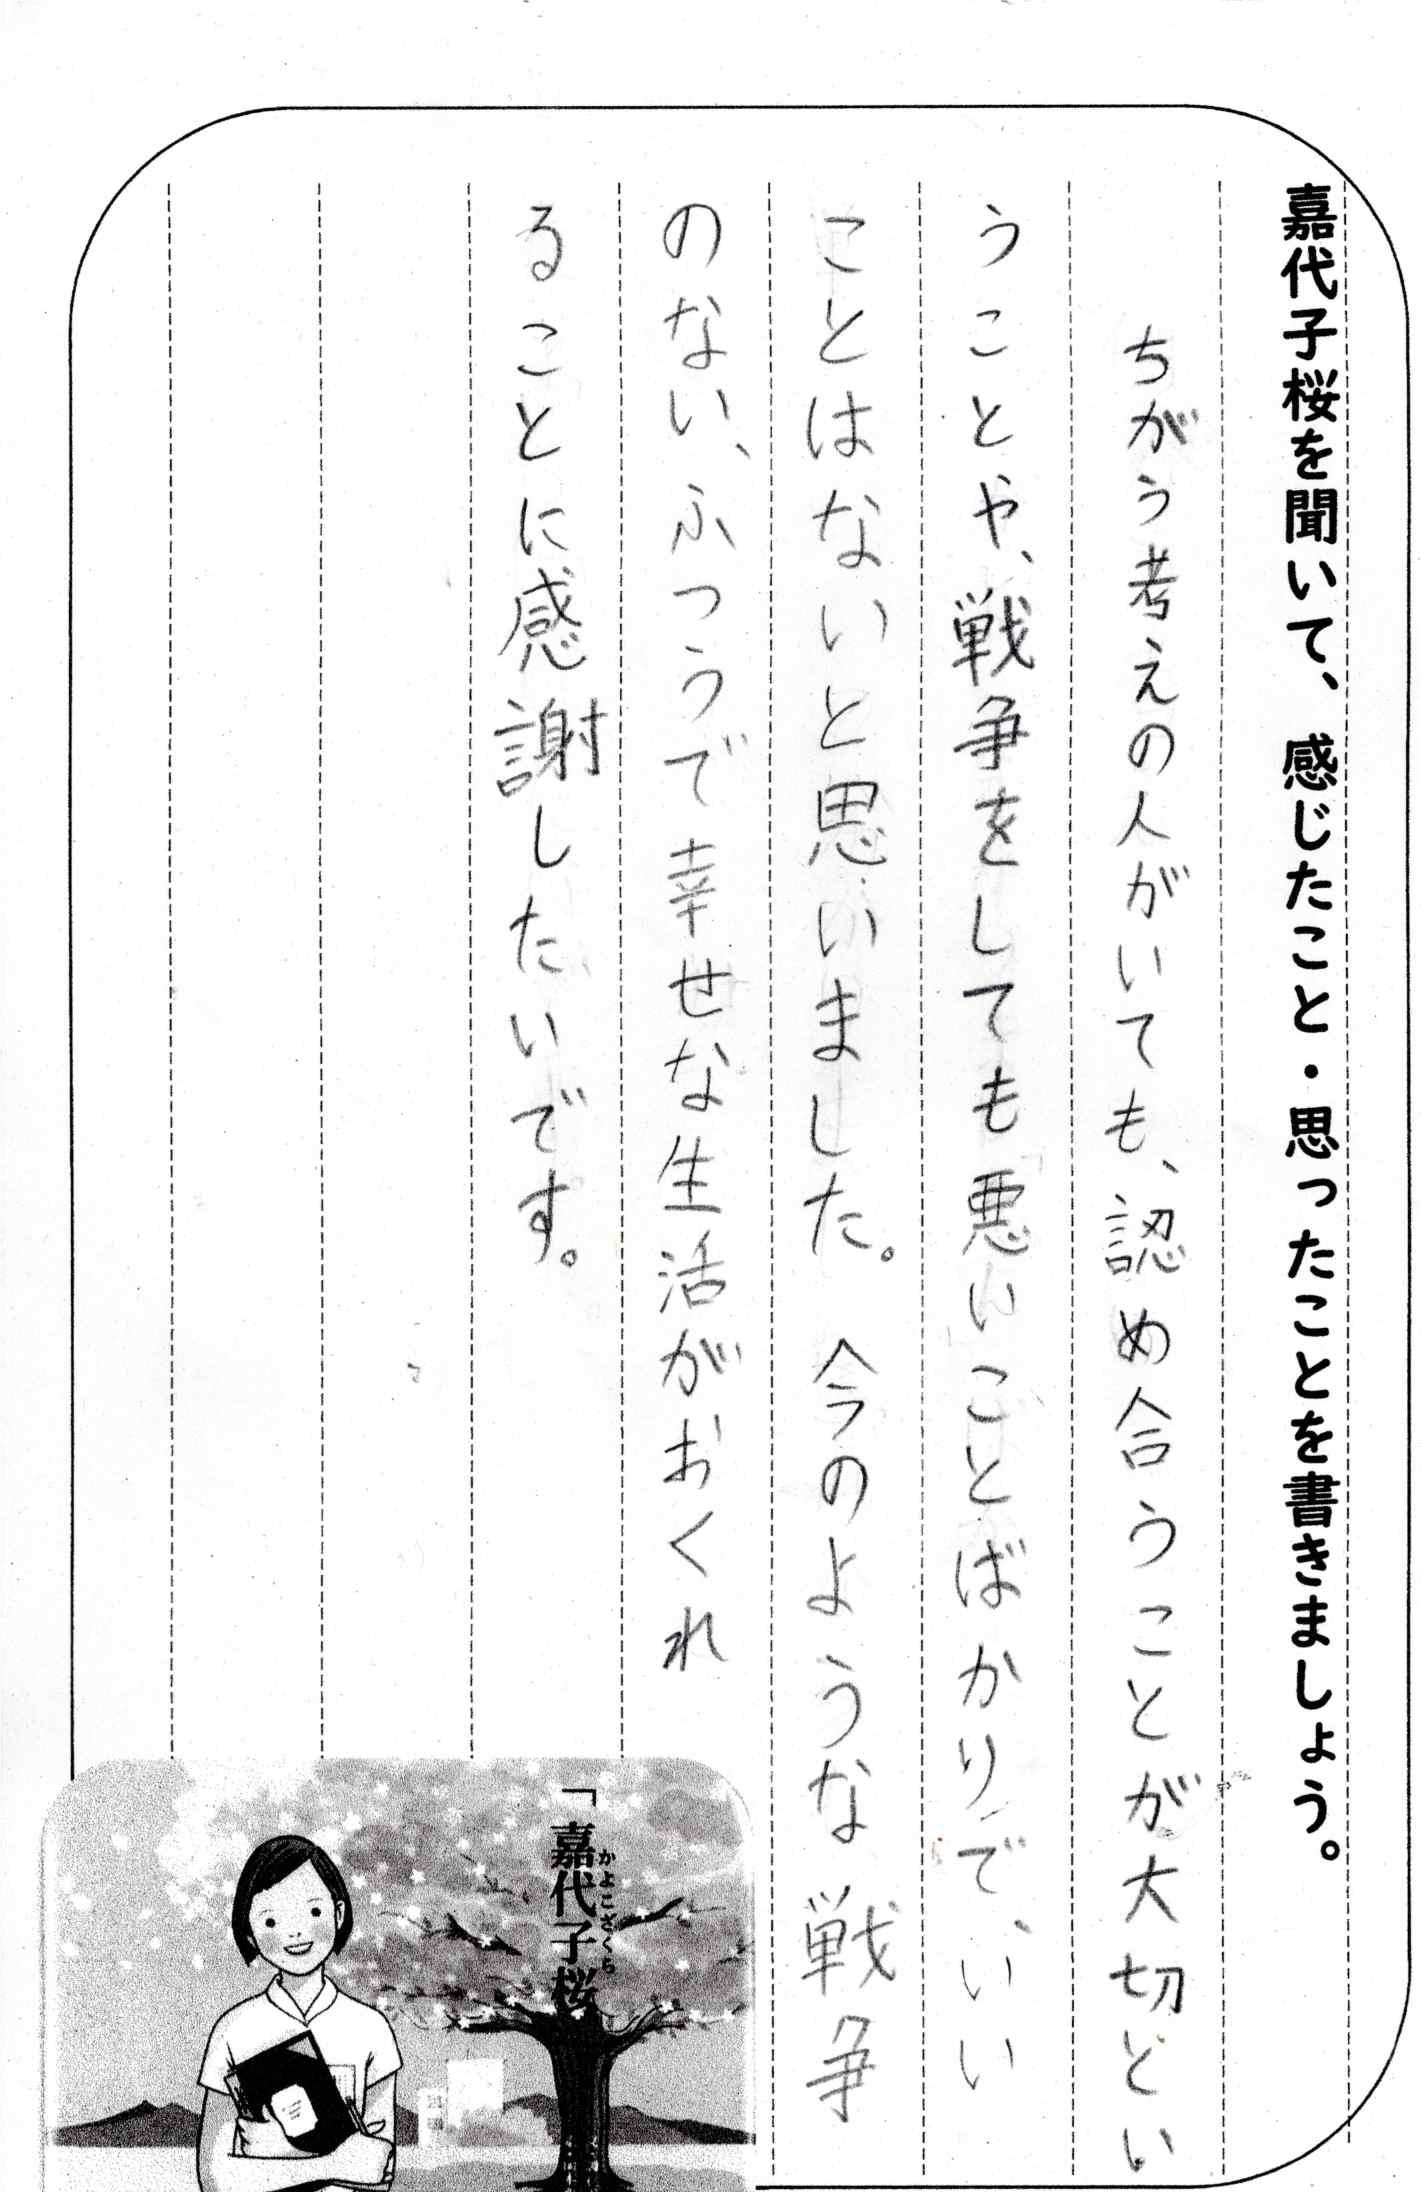 嘉代子桜を聞いて、感じたこと・思ったことを書きましょう。
ちがう考えの人がいても、認め合うことが大切とい
うことや、戦争をしても悪いことばかりで、いい
ことはないと思いました。今のような戦争
のない、ふつうで幸せな生活がおくれ
ることに感謝したいです。
「嘉代子桜
かよこざくら